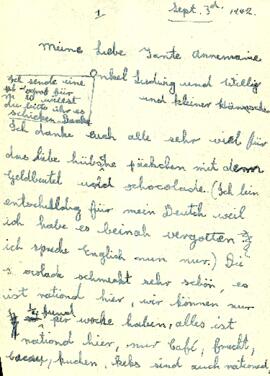 1
Sept. 3d. 1942.
Meine liebe Tante Annemarie
Onkel Ludwig und Willy
und kleiner
Ich sende eine
für
willest
du bitte ihr es
schicken Danke
Ich danke euch alle sehr viel für
das liebe hübshe päckchen mit dem
Geldbeutel und schocolade. (Ich bin
entschuldig für mein Deutch weil
ich habe es beinah vergotten
ich spreche English nun nur.) Die
schmeckt sehr schön, es
ist nationd hier, wir können nur
pfund
per woche haben, alles ist
nationd hier, nur Café, frucht,
cacau, kuchen, Keks sind auch nationed